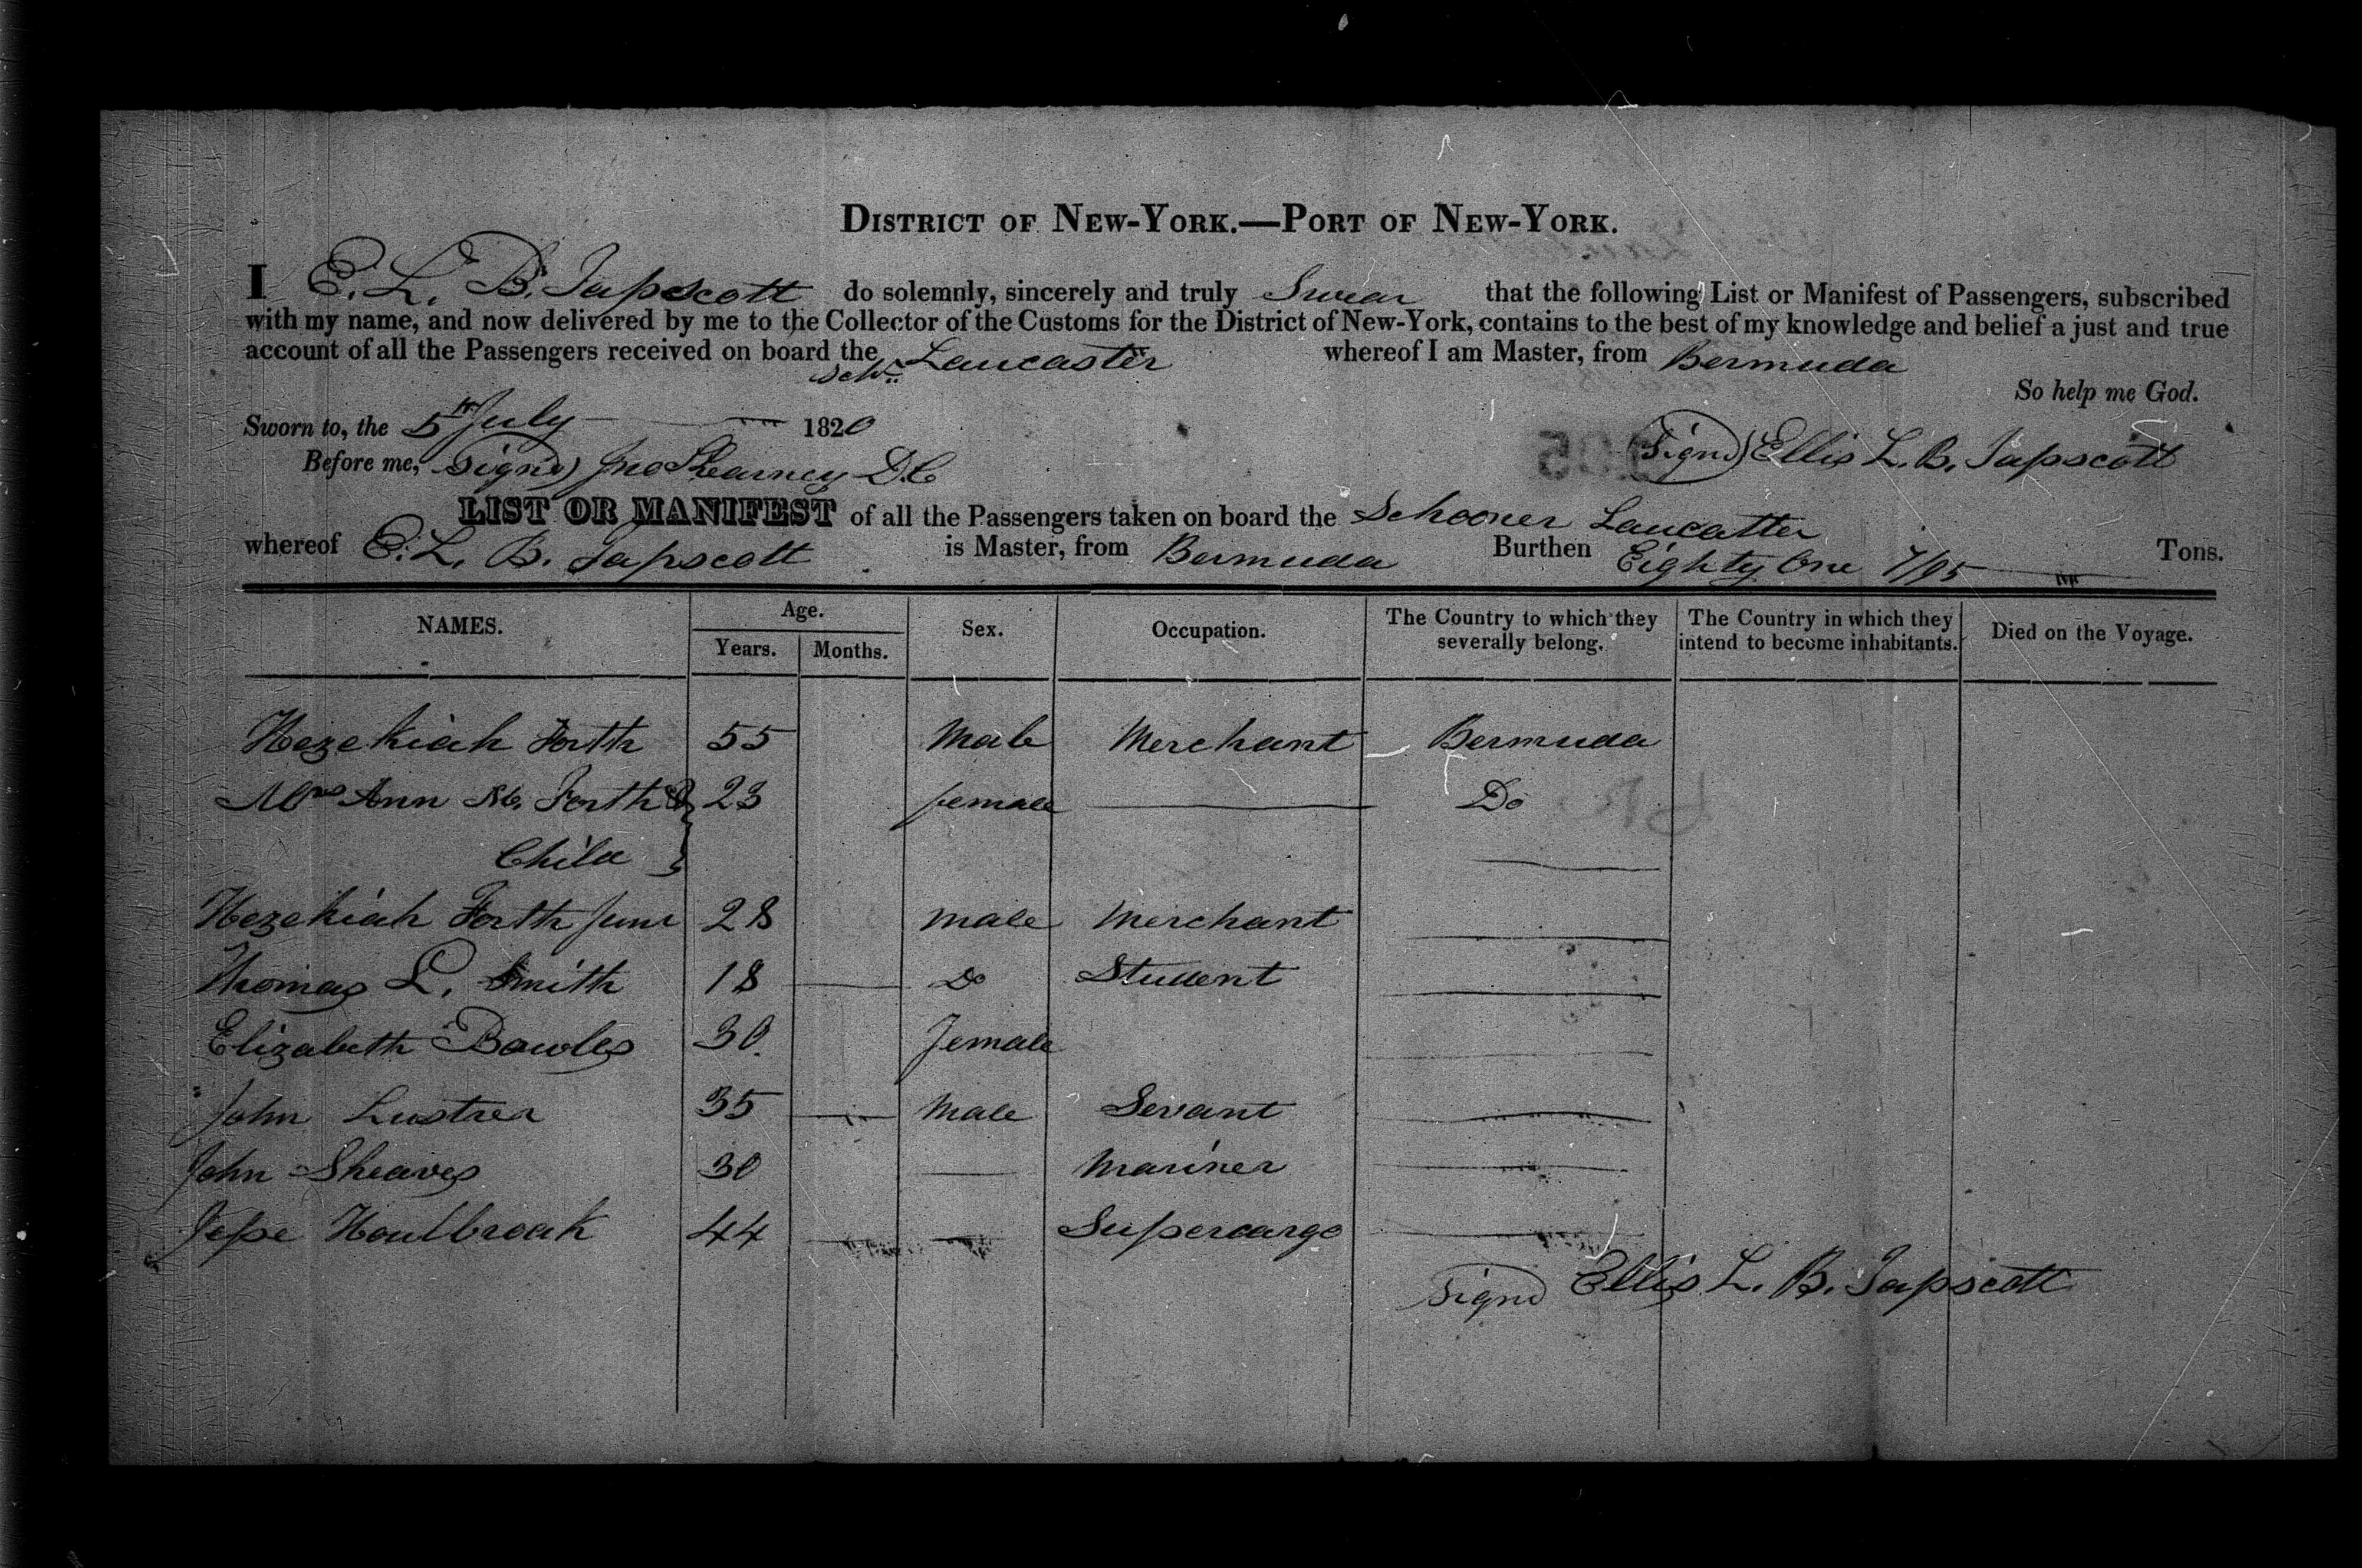 DISTRICT OF NEW-YORK.—PORT OF NEW-YORK.
I E. L. B. Tapscott do solemnly, sincerely and truly Swear that the following List or Manifest of Passengers, subscribed
with my name, and now delivered by me to the Collector of the Customs for the District of New-York, contains to the best of my knowledge and belief a just and true
account of all the Passengers received on board the Schr. Lancaster whereof I am Master, from Bermuda
So help me God.
Sworn to, the 5th July 1820
Signd) Ellis L. B. Tapscott
Before me, Signd) Jno Shearney D.C
LIST OR MANIFEST of all the Passengers taken on board the Schooner Lancatter
whereof E. L. B. Tapscott is Master, from Bermuda Burthen Eighty One 7/95 Tons.
NAMES. Age. Years. Months. Sex. Occupation. The Country to which they severally belong. The Country in which they intend to become inhabitants. Died on the Voyage.
Hezekiah Forth 55 Male Merchant Bermuda
Mrs Ann M. Forth & 23 female Do
Child
Hezekiah Forth Junr 28 male Merchant
Thomas L. Smith 18 Do Student
Elizabeth Bowles 30. Female
John Lustrer 35 Male Servant
John Sheaves 30 Mariner
Jesse Houlbrook 44 Supercargo
Signd Ellis L. B. Tapscott